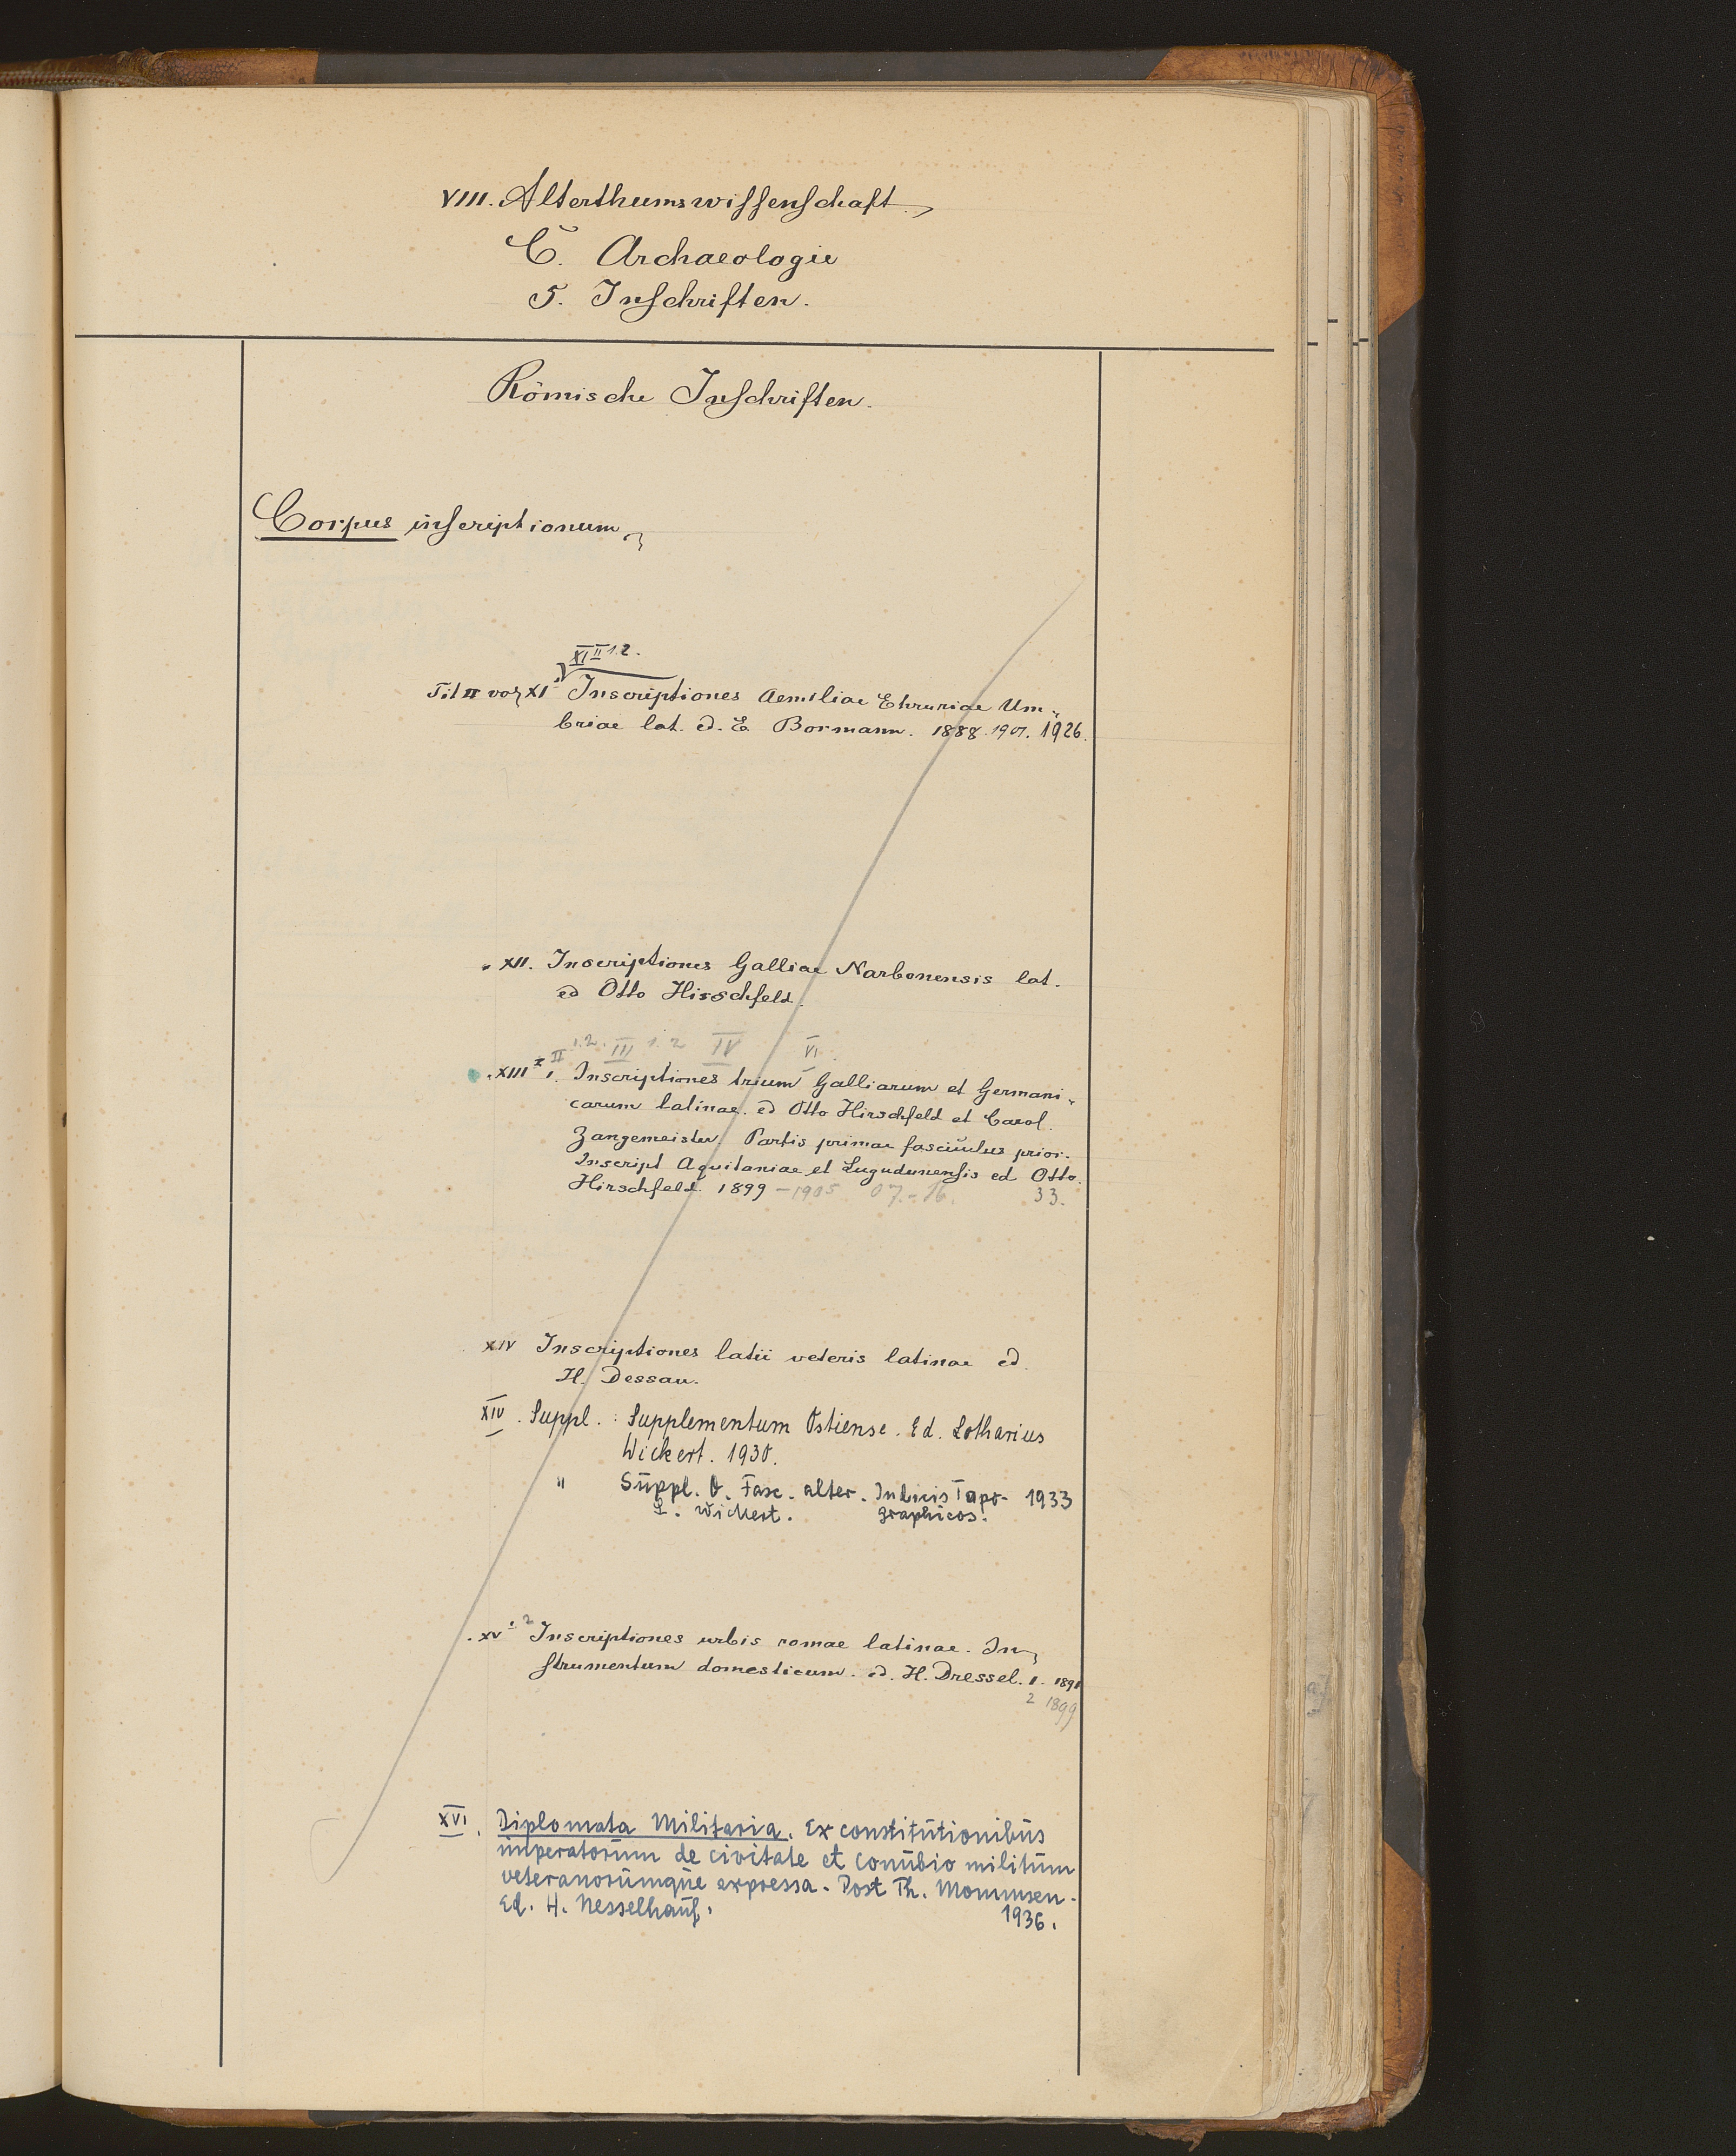 VIII. Alterthumswissenschaft.
C. Archaeologie
5. Inschriften.
Römische Inschriften.
Corpus inscriptionum
XI II 1.2.
XI Inscriptiones Aemiliae Etruriae Um-
briae lat. ed. E. Bormann. 1888. 1901. 1926.
" XII. Inscriptiones Galliae Narbonensis lat.
ed Otto Hirschfeld.
II 1.2. III 1.2 IV VI.
" XIII I 1. Inscriptiones trium Galliarum et Germani-
carum latinae. ed Otto Hirschfeld et Carol.
Zangemeister. Partis primae fasciculus prior.
Inscript Aquitaniae et Lugudunensis ed Otto.
Hirschfeld. 1899 - 1905. 07. - 16. 33.
XIV Inscriptiones latii veteris latinae ed.
H. Dessau.
XIV. Suppl. : Supplementum Ostiense. Ed. Lotharius
Wickert. 1930.
" Suppl. O. Fasc. alter. Indicis Topo- 1933
L. Wickert. graphicos.
XV 1. 2 Inscriptiones urbis romae latinae. In-
strumentum domesticum. ed. H. Dressel. 1. 1891
2 1899
XVI. Diplomata Militaria. Ex constitutionibus
imperatorum de civitate et conubio militum
veteranorumque expressa. Post Th. Mommsen.
Ed. H. Nesselhauf. 1936.